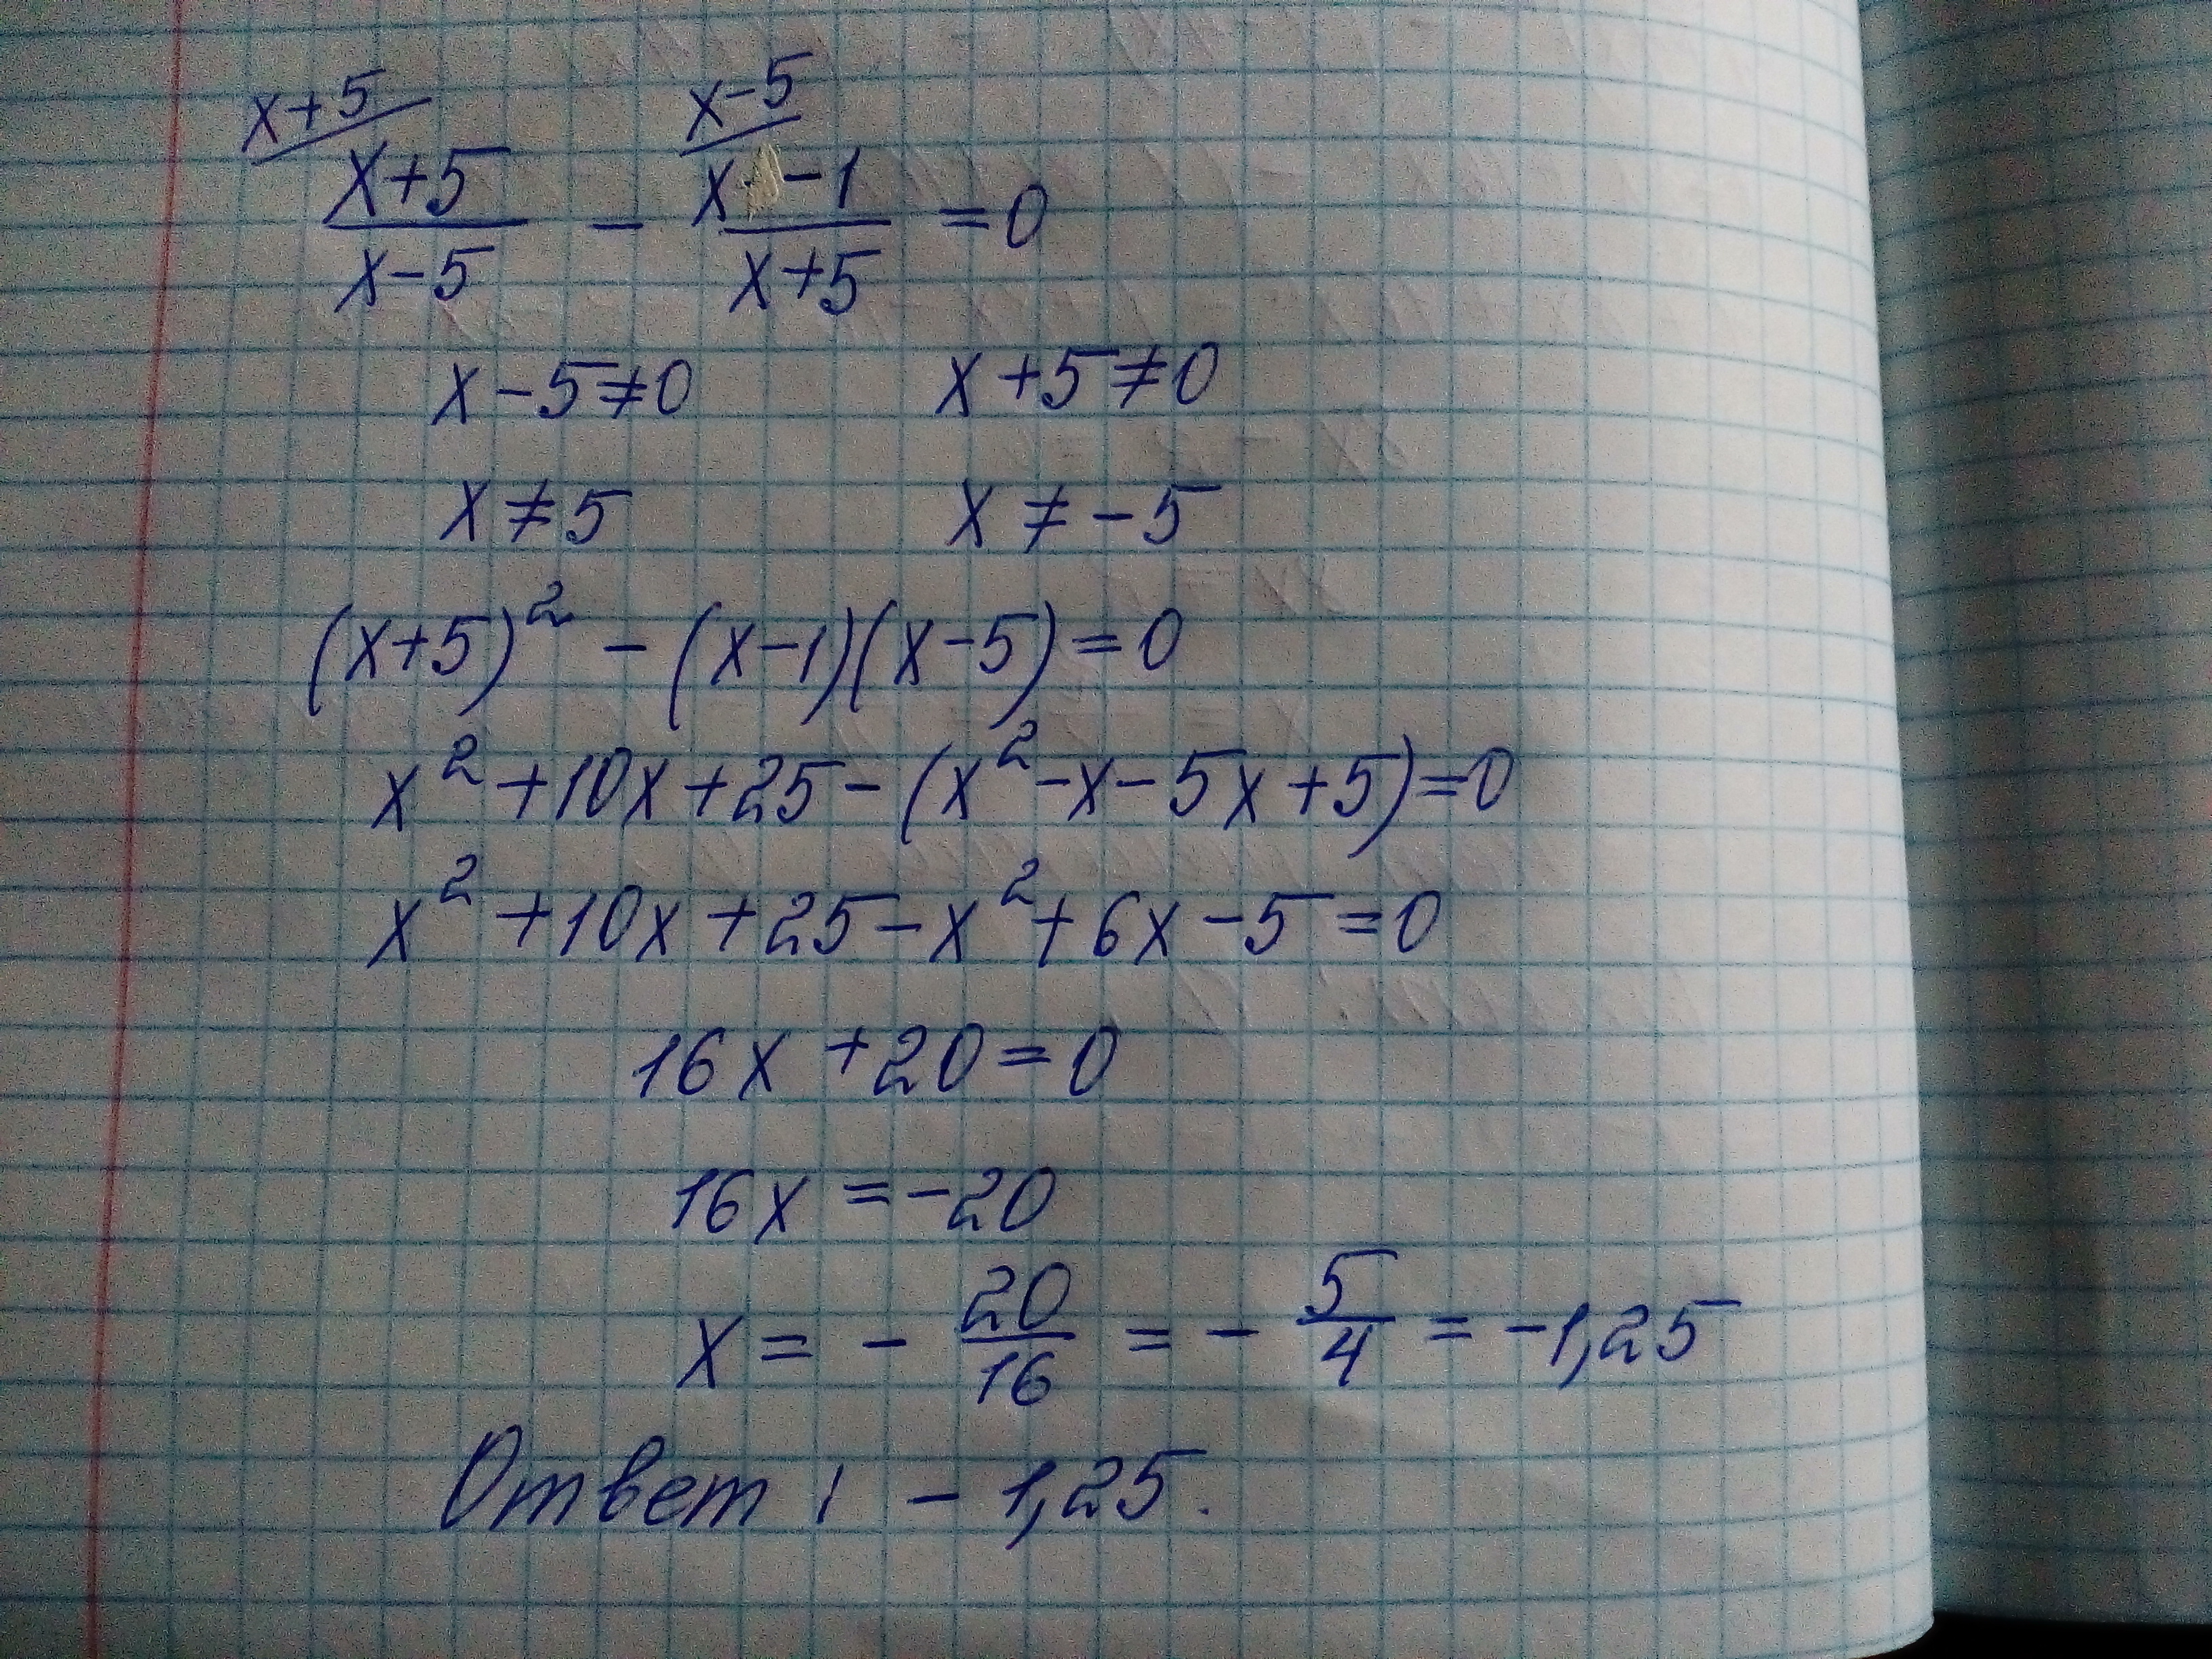 x+5 x-5
x+5 / x-5 - x -1 / x+5 = 0
x-5≠0 x+5≠0
x≠5 x≠-5
(x+5)² - (x-1)(x-5)=0
x²+10x+25-(x²-x-5x+5)=0
x²+10x+25-x²+6x-5=0
16x+20=0
16x=-20
x = - 20/16 = - 5/4 = -1,25
Ответ: -1,25.